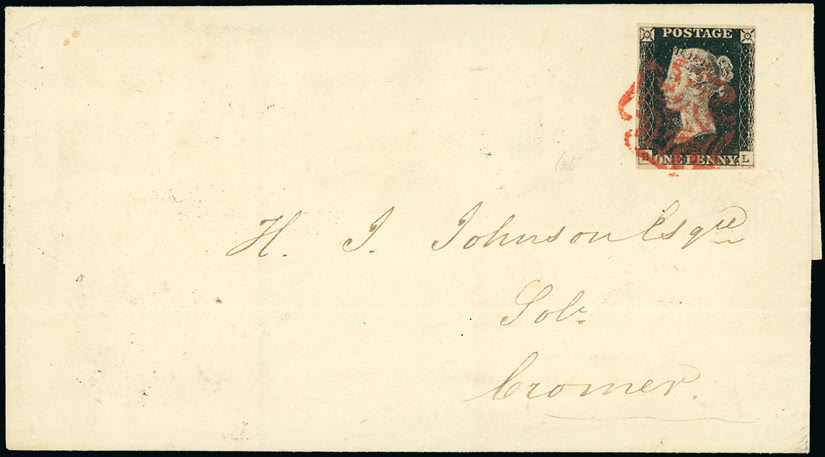 POSTAGE
ONE PENNY
L
H. J. Johnson Esqre
Solr
Cromer.